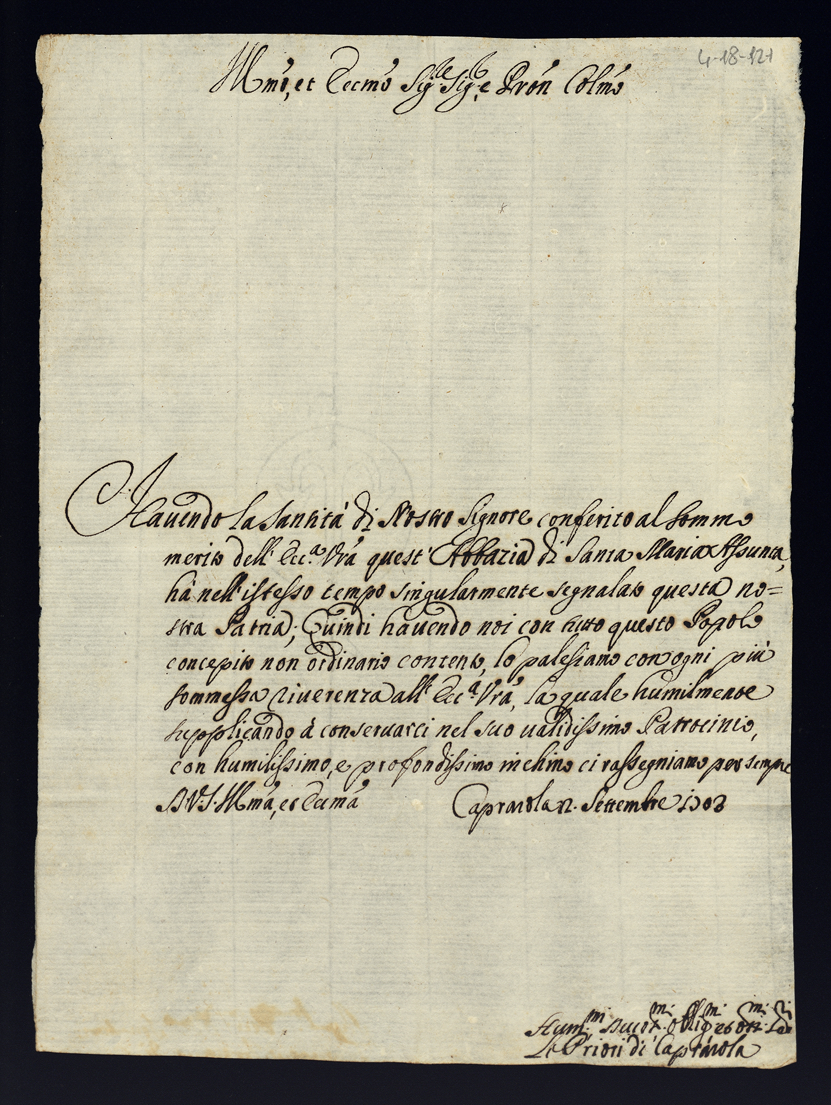 4-18-121
Illmo, et Eccmo Sigre Sigr, e Pròn Colmo
Havendo la Santità di Nostro Signore conferito al sommo
merito dell' Ecc.a Vrà quest' Abbazia di Santa Maria Assunta,
hà nell'istesso tempo singularmente segnalato questa no=
stra Patria; Quindi havendo noi con tutto questo Popolo
concepito non ordinario contento, lo palesiamo con ogni più
sommessa riverenza all' Ecc.a Vrà, la quale humilmente
supplicando à conservarci nel suo validissimo Patrocinio,
con humilissimo, e profondissimo inchino ci rassegniamo per sempre
D V S. Illma, et Eccma Caprarola 12. Settembre 1703
Hum.mi Devot.mi Oblig.mi et
Li Priori di Caprarola